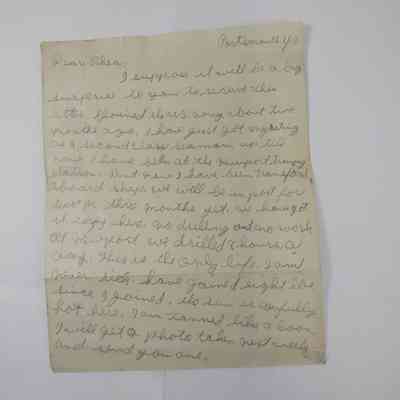 Portsmouth Va
Dear
I suppose it will be a big
surprise to you to receive this
letter. I joined the navy about two
months ago. I have just got my rating
as a second class seaman up till
now I have been at the Newport training
station. But now I have been transfered
aboard ship. We will be in port for
two or three months yet. We have got
it easy here, no drilling and no work
At Newport we drilled 8 hours a
day. This is the only life. I am
never sick. have gained eight lbs
since I joined. the sun is awfully
hot here. I am tanned like a coon
I will get a photo taken next week
and send you one.